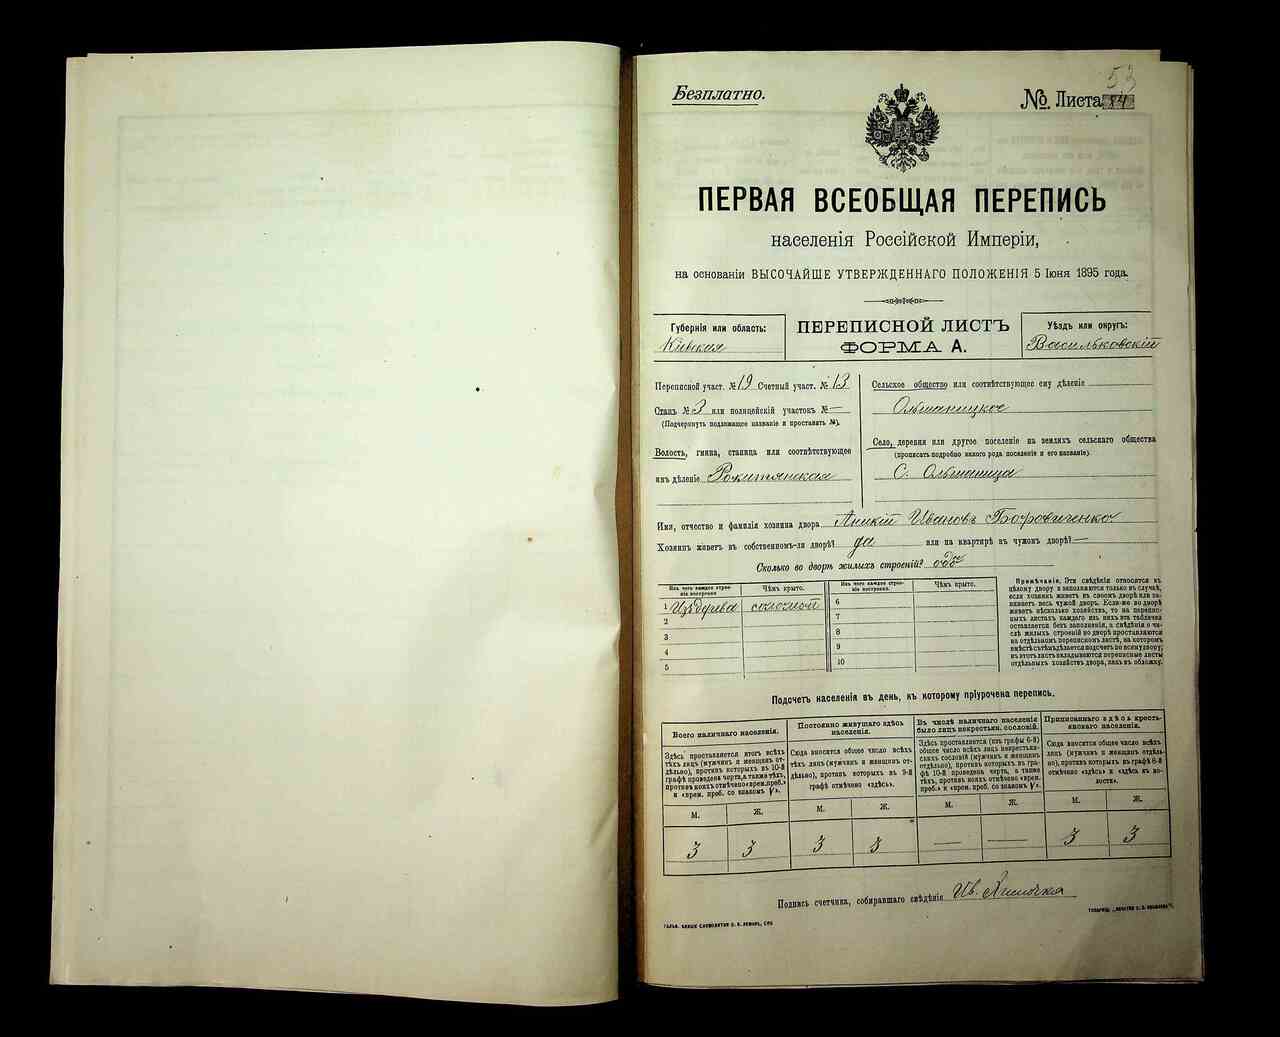 53
Безплатно.
№ Листа 84
ПЕРВАЯ ВСЕОБЩАЯ ПЕРЕПИСЬ
населенія Россійской Имперіи,
на основаніи ВЫСОЧАЙШЕ УТВЕРЖДЕННАГО ПОЛОЖЕНІЯ 5 Іюня 1895 года.
Губернія или область:
Кіевская
ПЕРЕПИСНОЙ ЛИСТЪ
ФОРМА А.
Уѣздъ или округъ:
Васильковскій
Переписной участ. № 19 Счетный участ. № 13
Станъ № 3 или полицейскій участокъ № —
(Подчеркнуть подлежащее названіе и проставить №).
Волость, гмина, станица или соотвѣтствующее
имъ дѣленіе Рокитянская
Сельское общество или соотвѣтствующее ему дѣленіе
Ольшаницкое
Село, деревня или другое поселеніе на земляхъ сельскаго общества
(прописать подробно какого рода поселеніе и его названіе).
С. Ольшаница
Имя, отчество и фамилія хозяина двора Аникій Ивановъ Боровиченко
Хозяинъ живетъ въ собственномъ-ли дворѣ? да или на квартирѣ въ чужомъ дворѣ? —
Сколько во дворѣ жилыхъ строеній?
Изъ чего каждое строеніе построено
Чѣмъ крыто.
1 Изъ дерева соломой
2
3
4
5
Изъ чего каждое строеніе построено.
Чѣмъ крыто.
6
7
8
9
10
Примѣчаніе. Эти свѣдѣнія относятся къ
цѣлому двору и заполняются только въ случаѣ,
если хозяинъ живетъ въ своемъ дворѣ или занимаетъ
весь чужой дворъ. Если-же во дворѣ
живетъ нѣсколько хозяйствъ, то на переписныхъ
листахъ каждаго изъ нихъ эта табличка
оставляется безъ заполненія, а свѣдѣнія о числѣ
жилыхъ строеній во дворѣ проставляются
на отдѣльномъ переписномъ листѣ, на которомъ
вмѣстѣ съ тѣмъ дѣлается подсчетъ по всему двору;
въ этотъ листъ вкладываются переписные листы
отдѣльныхъ хозяйствъ двора, какъ въ обложку.
Подсчетъ населенія въ день, къ которому пріурочена перепись.
Всего наличнаго населенія.
Здѣсь проставляется итогъ всѣхъ
тѣхъ лицъ (мужчинъ и женщинъ отдѣльно),
противъ которыхъ въ 10-й
графѣ проведена черта, а также тѣхъ,
противъ коихъ отмѣчено «врем. преб.»
и «врем. проб. со знакомъ V».
М. Ж.
3 3
Постоянно живущаго здѣсь населенія.
Сюда вносится общее число всѣхъ
тѣхъ лицъ (мужчинъ и женщинъ отдѣльно),
противъ которыхъ въ 9-й
графѣ отмѣчено «здѣсь».
М. Ж.
3 3
Въ числѣ наличнаго населенія
было лицъ некрестьян. сословій.
Здѣсь проставляется (изъ графы 6-й)
общее число всѣхъ лицъ некрестьянскихъ
сословій (мужчинъ и женщинъ
отдѣльно), противъ которыхъ въ графѣ
10-й проведена черта, а также
тѣхъ, противъ коихъ отмѣчено «врем.
преб.» и «врем. преб. со знакомъ V».
М. Ж.
— —
Приписаннаго здѣсь крестьянскаго населенія.
Сюда вносится общее число всѣхъ
лицъ (мужчинъ и женщинъ отдѣльно),
противъ которыхъ въ графѣ 8-й
отмѣчено «здѣсь» и «здѣсь въ волости».
М. Ж.
3 3
Подпись счетчика, собиравшаго свѣдѣнія Ив.